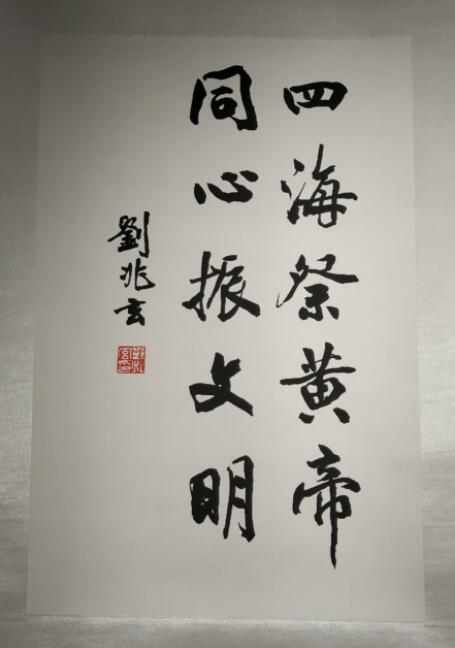 四海祭黄帝
同心振文明
劉兆玄